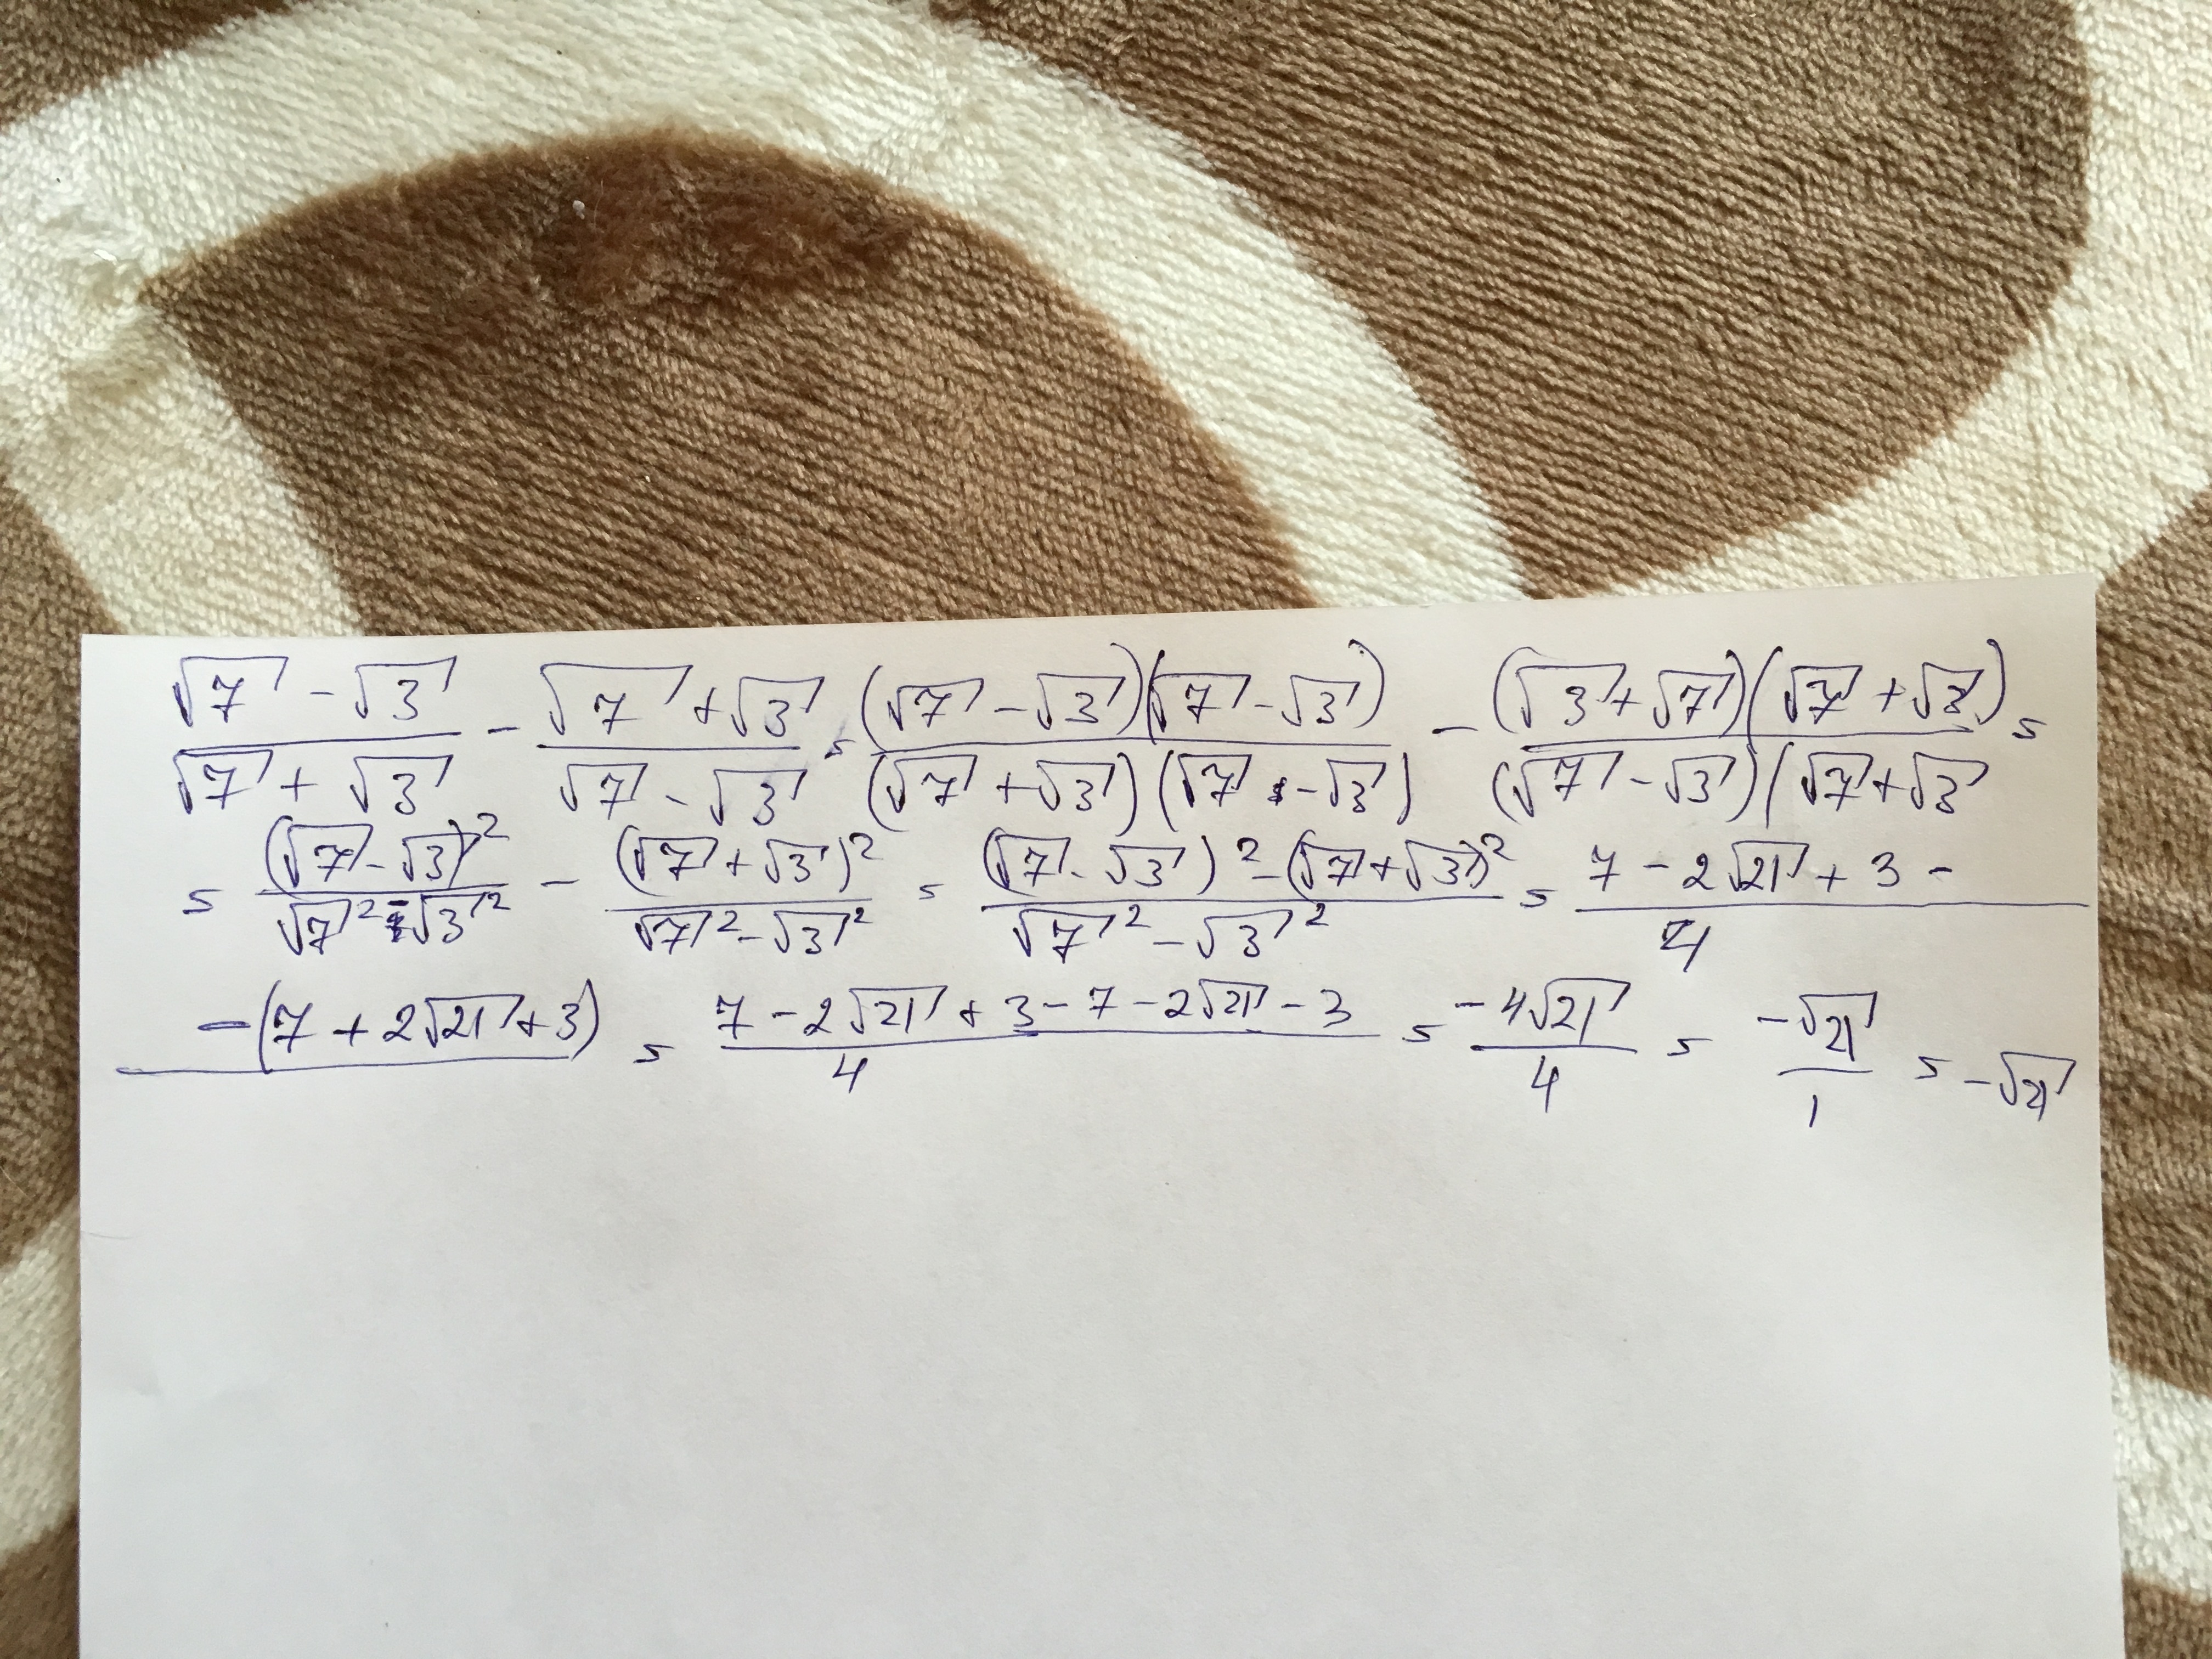 (√7 - √3)/(√7 + √3) - (√7 + √3)/(√7 - √3) = ((√7 - √3)(√7 - √3))/((√7 + √3)(√7 - √3)) - ((√3 + √7)(√7 + √3))/((√7 - √3)(√7 + √3 =
= (√7 - √3)²/(√7² - √3²) - (√7 + √3)²/(√7² - √3²) = ((√7 - √3)² - (√7 + √3)²)/(√7² - √3²) = (7 - 2√21 + 3 -)/4
-(7 + 2√21 + 3) = (7 - 2√21 + 3 - 7 - 2√21 - 3)/4 = (-4√21)/4 = (-√21)/1 = -√21